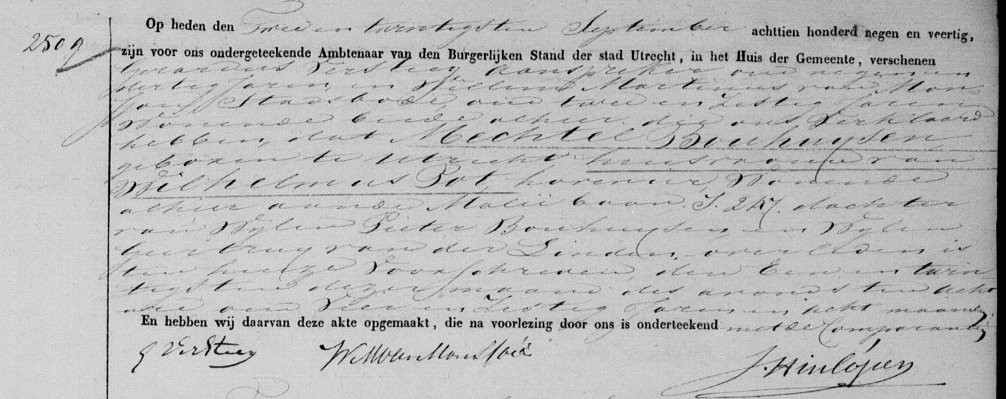 2509
Op heden den Twee en twintigsten September achttien honderd negen en veertig,
zijn voor ons ondergeteekende Ambtenaar van den Burgerlijken Stand der stad Utrecht, in het Huis der Gemeente, verschenen
Gerardus Versteeg aanspreker oud negen en
dertig Jaren en Willem Martinus van Mon
Stadsbode, oud twee en zestig Jaren
Wonende beide alhier, die ons verklaard
hebben, dat Mechtel Bouhuysen
geboren te Utrecht huisvrouw van
Wilhelmus Pot hovenier, Wonende
alhier aande Maliebaan J. 247. dochter
van Wylen Pieter Bouhuysen en Wylen
Geertruy van der Linden, overleden is
ten huize voorschreven den Een en twin
tigsten dezer maand des avonds ten acht
ure oud Jaren en acht maanden
En hebben wij daarvan deze akte opgemaakt, die na voorlezing door ons is onderteekend met de Comparanten
G Versteeg
J. Hinlópen